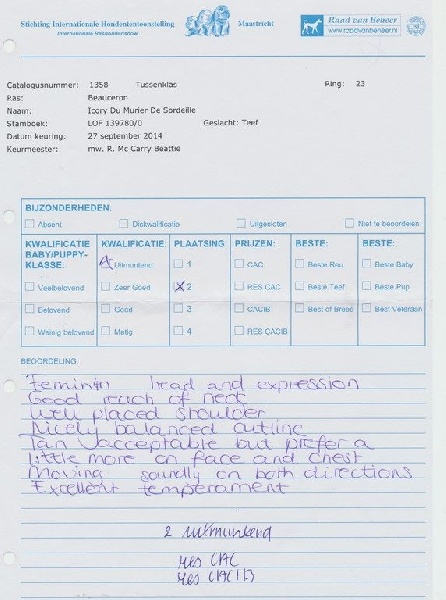 Stichting Internationale Hondententoonstelling Maastricht
Raad van Beheer
www.raadvanbeheer.nl
Catalogusnummer: 1358 Tussenklas Ring: 23
Ras: Beauceron
Naam: Icory Du Murier De Sordeille
Stamboek: LOF 139780/0 Geslacht: Teef
Datum keuring: 27 september 2014
Keurmeester: mw. R. Mc Carry Beattie
BIJZONDERHEDEN:
Absent Diskwalificatie Ungesloten Niet te beoordelen
KWALIFICATIE BABY/PUPPY-KLASSE: KWALIFICATIE: PLAATSING PRIJZEN: BESTE: BESTE:
Uitmuntend 1 CAC Beste Reu Beste Baby
Veelbelovend Zeer Goed X 2 RES CAC Beste Teef Beste Pup
Belovend Goed 3 CACIB Best of Breed Best Veteran
Weinig belovend Matig 4 RES CACIB
BEOORDELING:
Feminin head and expression
Good reach of neck
Well placed shoulder
Nicely balanced outline
Tan acceptable but prefer a
little more on face and chest
Moving soundly on both directions
Excellent temperament
2 uitmuntend
res CAC
res CACIB